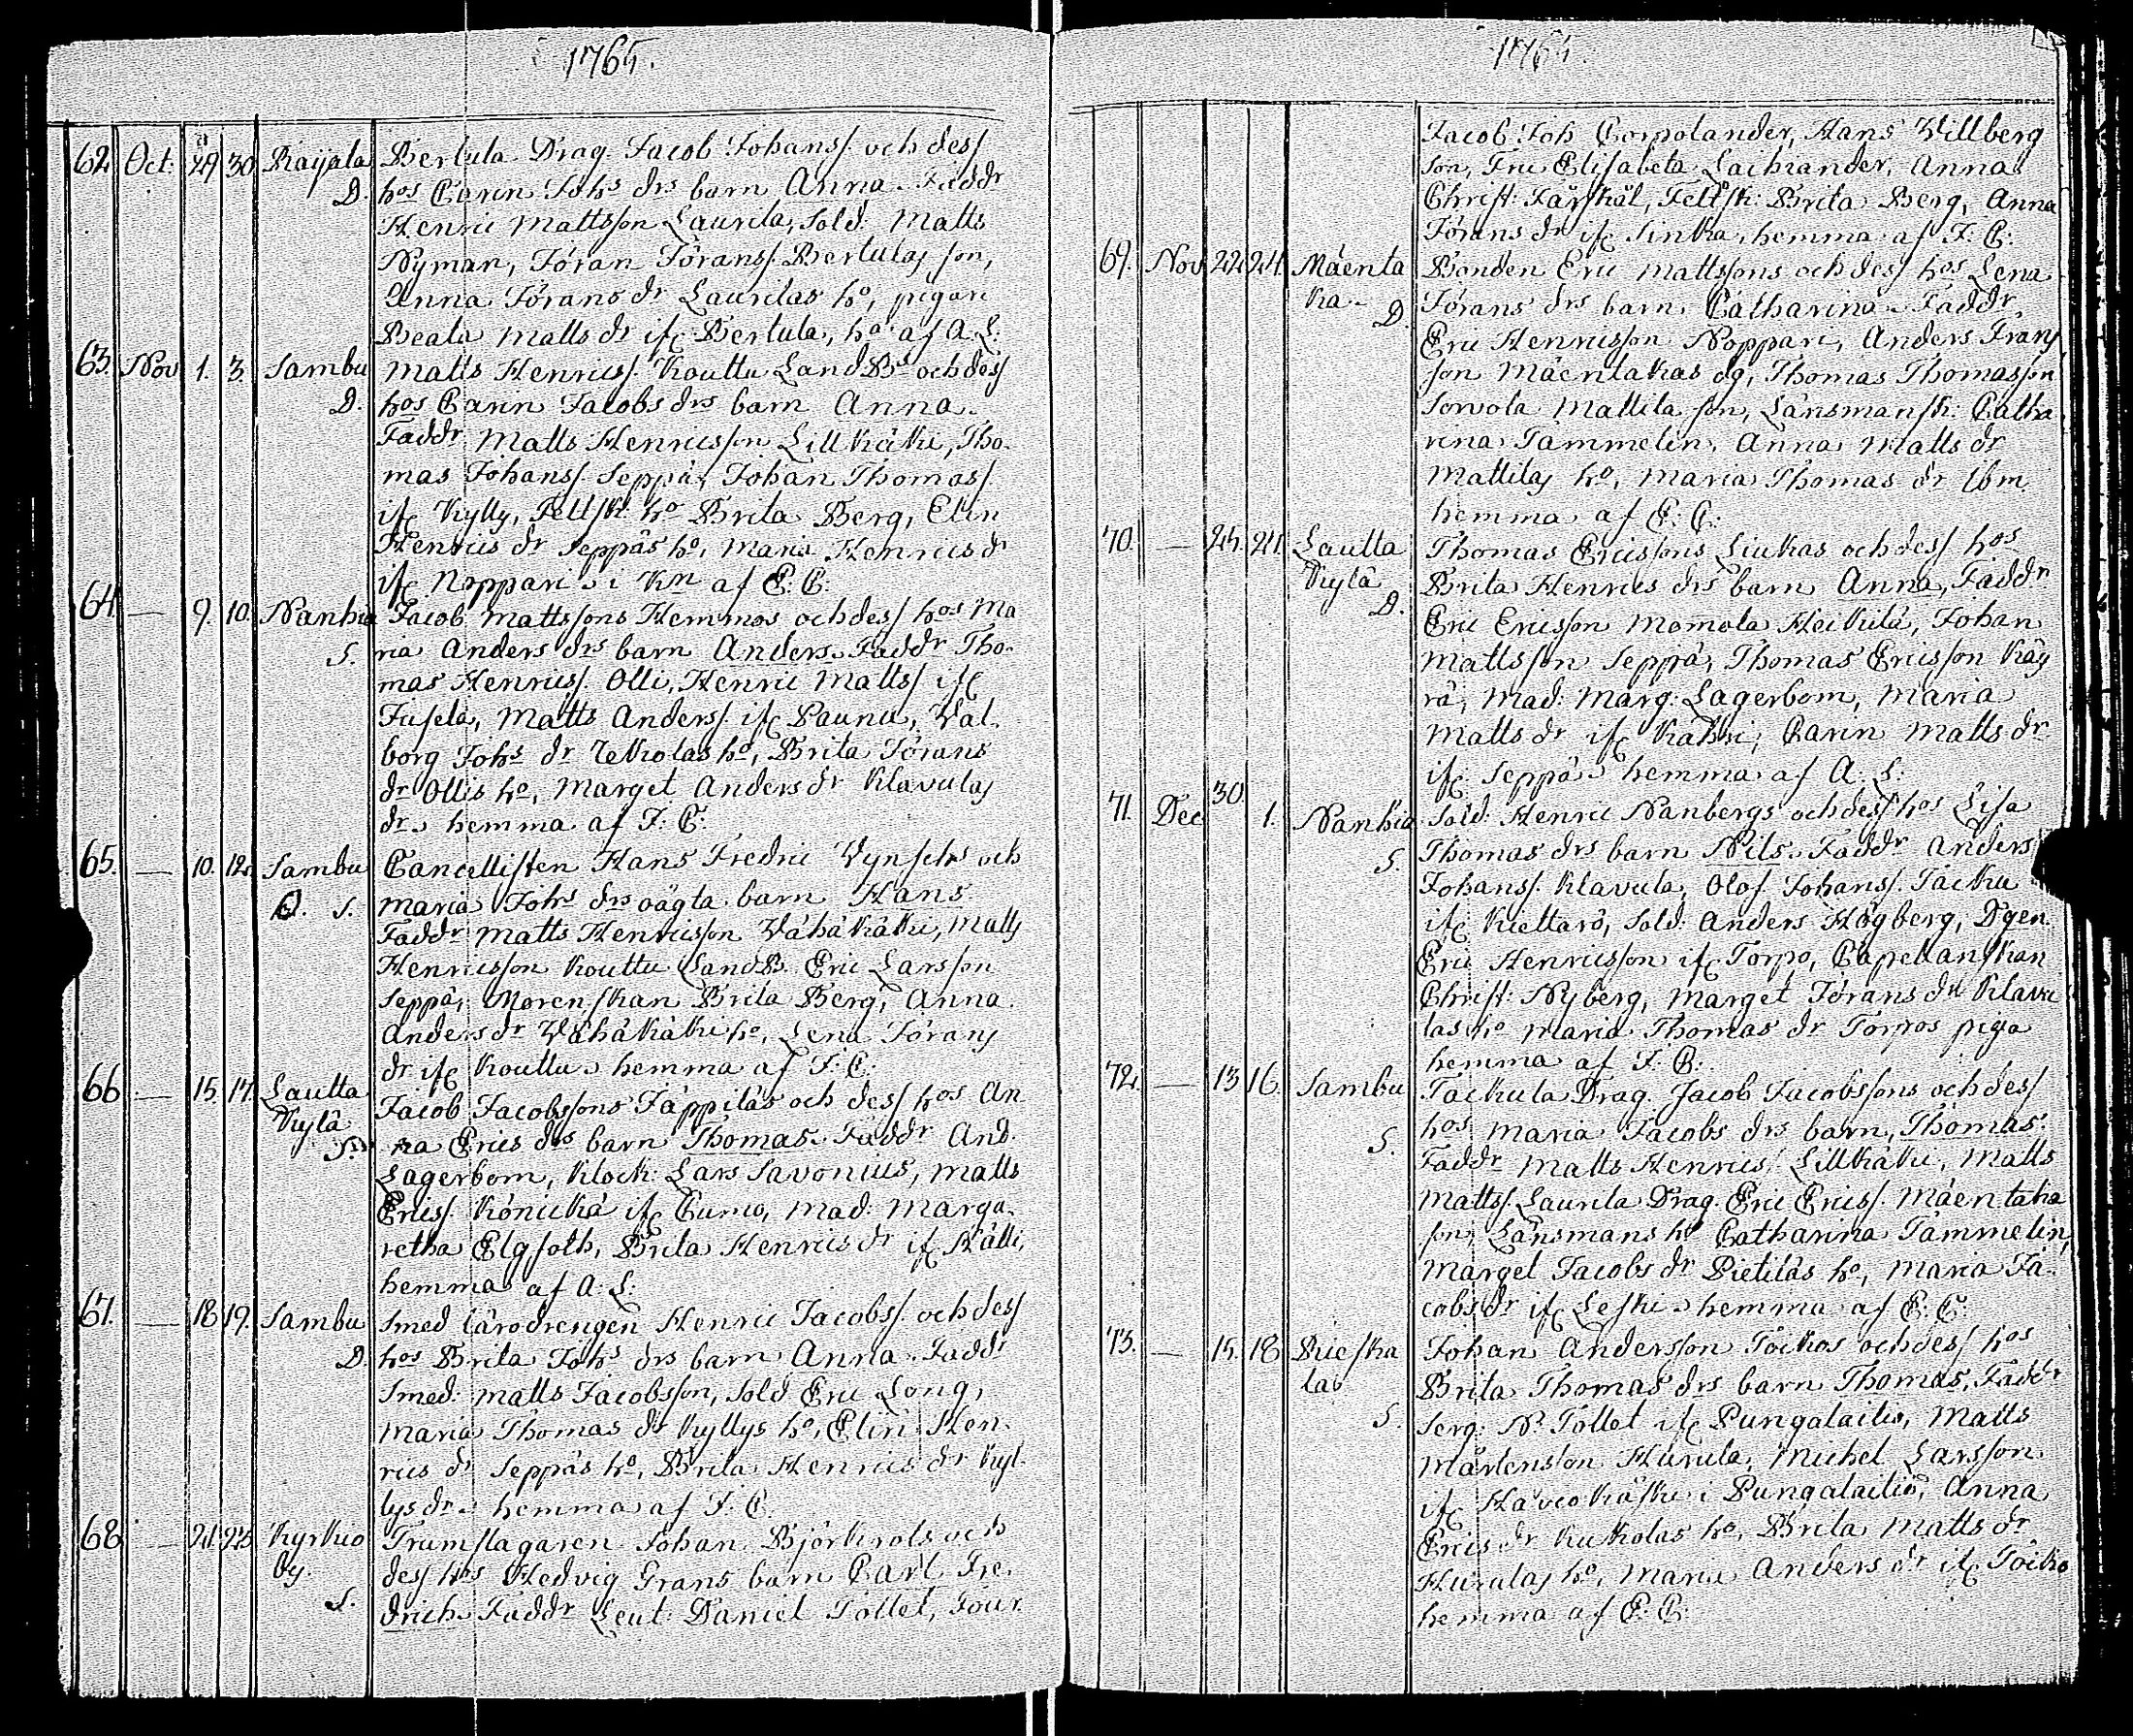 1765.
62. Oct: 29 30 Raijala Bertula Drag. Jacob Johanss. och dess
D. hos Carin Johs drs barn Anna. Faddr
Henric Mattsson Laurila, Sold: Matts
Nyman, Jöran Jöranss. Bertulas son,
Anna Jörans dr Laurilas ho, pigan
Beata Matts dr ifr Bertula, ho af A. L:
63. Nov 1. 3. Sambu Matts Henricss. Kouttu LandB och dess
D. hos Carin Jacobs drs barn Anna.
Faddr Matts Henricsson Lillkäki, Tho-
mas Johanss. Seppä, Johan Thomass.
ifr Kylly, Feltsk: ho Brita Berg, Elin
Henrics dr Seppäs ho, Maria Henrics dr
ifr Noppari i Kn af E: C:
64. — 9. 10. Nanhia Jacob Mattssons Hemmos och dess hos Ma
S. ria Anders drs barn Anders. Faddr Tho-
mas Henricss. Olli, Henric Matts ifr
Jusela, Matts Anderss. ifr Paunu, Wal-
borg Johs dr Uckolas ho, Brita Jörans
dr Ollis ho, Marget Anders dr Klavulas
dr. hemma af F: C:
65. — 10. 12. Sambu Cancellisten Hans Fredric Wynschs och
O. S. Maria Johs drs oägta barn Hans.
Faddr Matts Henricsson Wähäkäki, Matts
Henricsson Kouttu LandB. Eric Larsson
Seppä, Morenskan Brita Berg, Anna
Anders dr Wähäkäki ho, Lena Jörans
dr ifr Kouttu. hemma af F: C:
66 — 15. 17. Lautta Jacob Jacobssons Jäppiläs och dess hos An
Kylä
S. na Erics drs barn Thomas. Faddr And.
Lagerbom, Klock: Lars Savonius, Matts
Ericss. Könickä ifr Curio, Mad: Marga-
retha Elgfoth, Brita Henrics dr ifr Kätti,
hemma af A: L:
67. — 18 19. Sambu Smed lärodrengen Henric Jacobss. och dess
D. hos Brita Johs drs barn Anna. Faddr
Smed: Matts Jacobsson, Sold Eric Long,
Maria Thomas dr Kyllys ho, Elin Hen-
rics dr Seppäs ho, Brita Henrics dr Kyl-
lys dr. hemma af F: C.
68 — 21. 23 Kyrkio Trumslagaren Johan Björkrots och
by. dess hos Hedvig Grans barn Carl Fre-
S. drich. Faddr Leut: Daniel Tollet, Jour
1765.
Jacob Joh Corpolander, Hans Willberg
son, Fru Elisabeta Lachrander, Anna
Christ: Färskål, Feltsk: Brita Berg, Anna
Jörans dr ifr Sinkka, hemma af F: C:
69. Nov 22 24. Mäenta Bonden Eric Mattssons och dess hos Lena
ka. D. Jörans drs barn Catharina. Faddr
Eric Henricsson Noppari, Anders Frans
son Mäentakas dg, Thomas Thomasson
Sorvola Mattila son, Länsmansk: Catha-
rina Tammelin, Anna Matts dr
Mattilas ho, Maria Thomas dr Ibm.
hemma af E: C:
70. — 24. Lautta Thomas Ericssons Liukas och dess hos
Kylä Brita Henrics drs barn Anna, Faddr
D. Eric Ericsson Momola Heikilä, Johan
Mattsson Seppä, Thomas Ericsson Käy
rä, Mad: Marg: Lagerbom, Maria
Matts dr ifr Kähri, Carin Matts dr
ifr Seppä. hemma af A: L:
71. Dec 30. 1. Nanhia Sold: Henric Nanbergs och dess hos Lisa
S. Thomas drs barn Nils. Faddr Anders
Johanss. Klavula, Olof Johanss. Täcku
ifr Kiettarö, Sold: Anders Högberg, Dgen.
Eric Henricsson ifr Torpo, Capellanskan
Christ: Nyberg, Marget Jörans dr Klavu
las ho Maria Thomas dr Torpos piga
hemma af F: C:
72. — 13 16. Sambu Tackula Drag. Jacob Jacobssons och dess
S. hos Maria Jacobs drs barn, Thomas.
Faddr Matts Henrics. Lillkäki, Matts
Mattss. Laurila Drag. Eric Ericss. Mäentaka
son, Länsmans ho Catharina Tammelin,
Marget Jacobs dr Pietiläs ho, Maria Ja-
cobs dr ifr Leski. hemma af E: C:
73. — 15. 18 Rieska Johan Andersson Töikos och dess hos
lax Brita Thomas drs barn Thomas, Faddr
S. Serg: N. Tollet ifr Pungalaitio, Matts
Mårtensson Hurula, Michel Larsson
ifr Havio i Pungalaitio, Anna
Erics dr Kuckolas ho, Brita Matts dr
Hurulas ho, Maria Anders dr ifr Töiko
hemma af E: C: